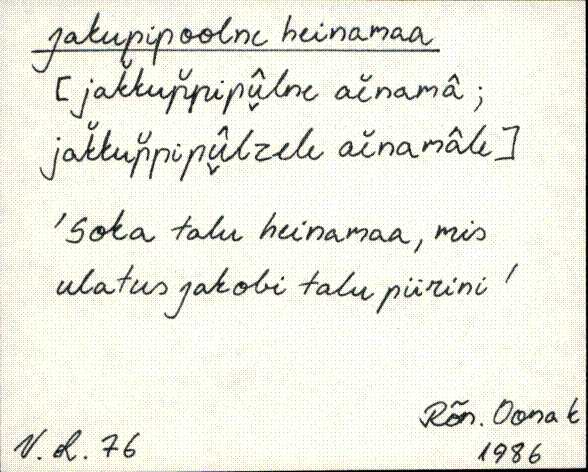 jakupipoolne heinamaa
[jak̆kup̆pipû̬lne aĕnamâ;
jak̆kup̆pipû̬lzele aĕnamâle]
'Soka talu heinamaa, mis
ulatus jakobi talu piirini'
Rõn. Oona k
V. L. 76
1986